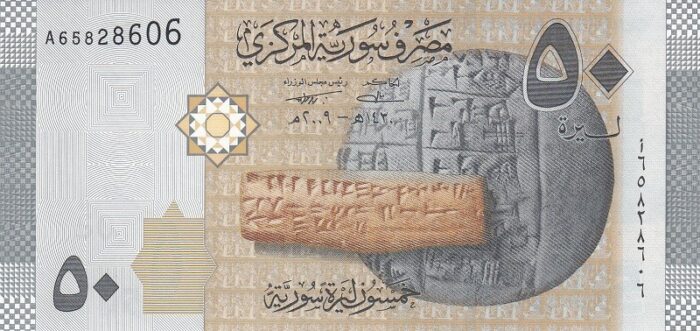 A65828606
مصرف سورية المركزي
٥٠
ليرة
الحاكم رئيس مجلس الوزراء
١٤٣٠هـ - ٢٠٠٩م
أ ٦٥٨٢٨٦٠٦
خمسون ليرة سورية
٥٠